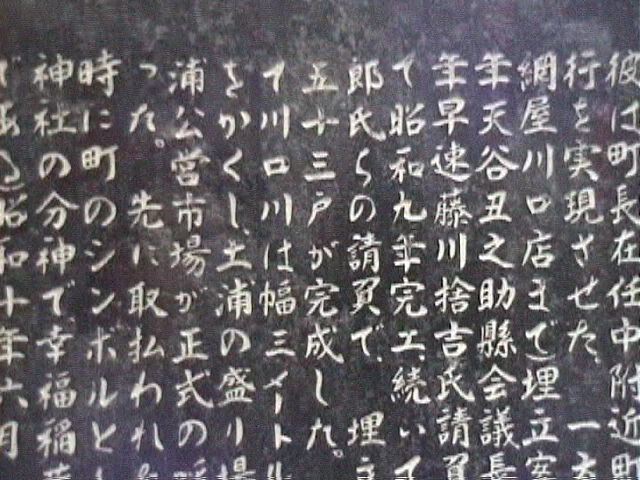 彼は町長在任中附近町
行を実現させた 一方
網屋川口店まで)埋立安
年天谷丑之助縣会議長
年早速藤川捨吉氏請負
て昭和九年完工、続いて
郎氏らの請負で、埋立
五十三戸が完成した。
て川口川は幅三メートル
をかくし、土浦の盛り場
浦公営市場が正式の呼
った。先に取払われた
時に町のシンボルとし
神社の分神で幸福稲荷
である)昭和十年六月